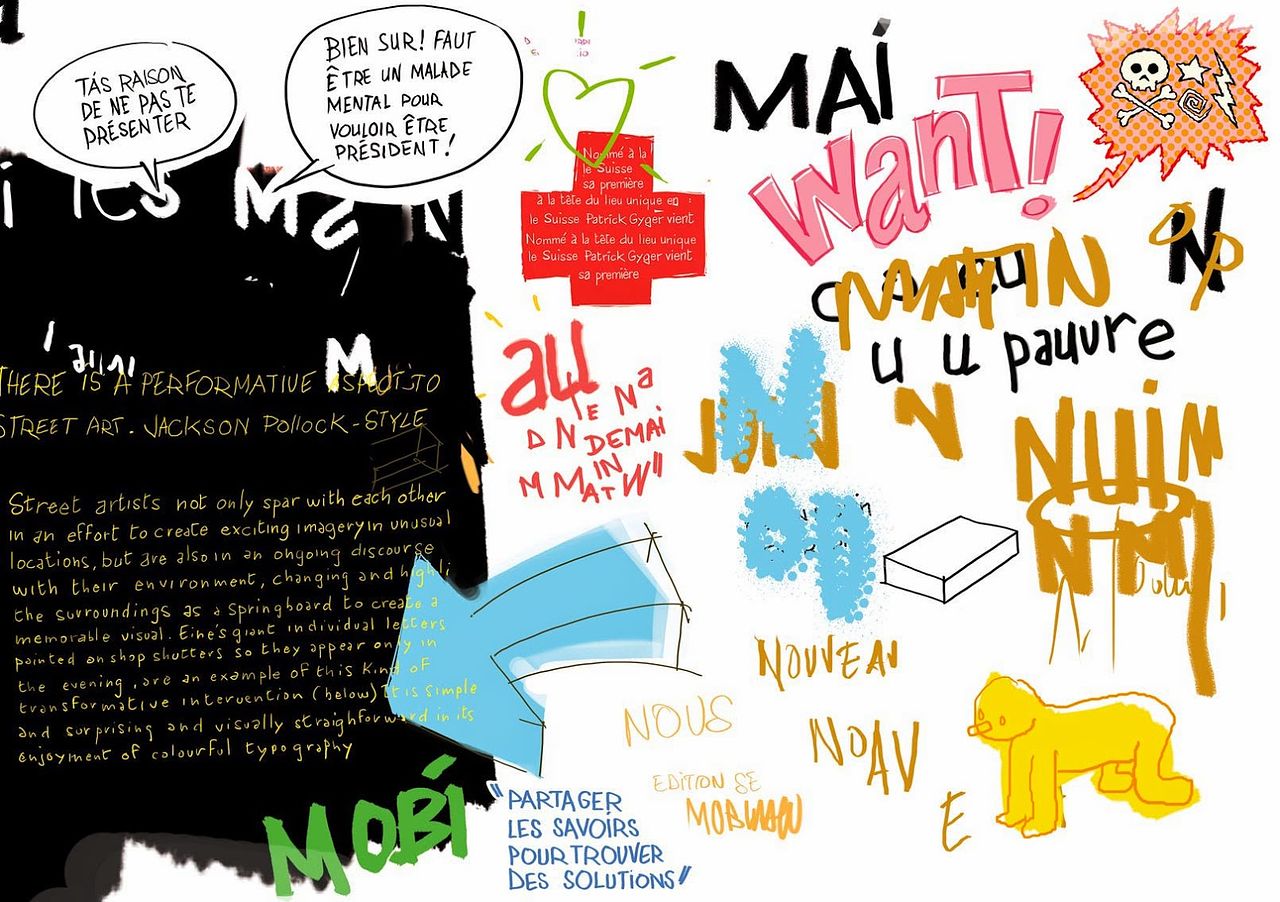 TÁS RAISON
DE NE PAS TE
PRÉSENTER
BIEN SUR! FAUT
ÊTRE UN MALADE
MENTAL POUR
VOULOIR ÊTRE
PRÉSIDENT!
les Ma N
M
THERE IS A PERFORMATIVE ASPECT TO
STREET ART. JACKSON POLLOCK-STYLE
Street artists not only spar with each other
in an effort to create exciting imagery in unusual
locations, but are also in an ongoing discourse
with their environment, changing and highli
the surroundings as a springboard to create a
memorable visual. Eine's giant individual letters
painted on shop shutters so they appear only in
the evening, are an example of this kind of
transformative intervention (below) It is simple
and surprising and visually straighforward in its
enjoyment of colourful typography
MOBÍ
Nommé à la
le Suisse
sa première
à la tête du lieu unique en :
le Suisse Patrick Gyger vient
Nommé à la tête du lieu unique
le Suisse Patrick Gyger vient
sa première
au
E Na
D N DEMAI
IN
M MATW"
"PARTAGER
LES SAVOIRS
POUR TROUVER
DES SOLUTIONS"
MAÍ
want!
N
op
MARTIN
u u pauvre
N
N
op
NUIM
N M
NOUVEAU
NOUS
NOAV
E
EDITION SE